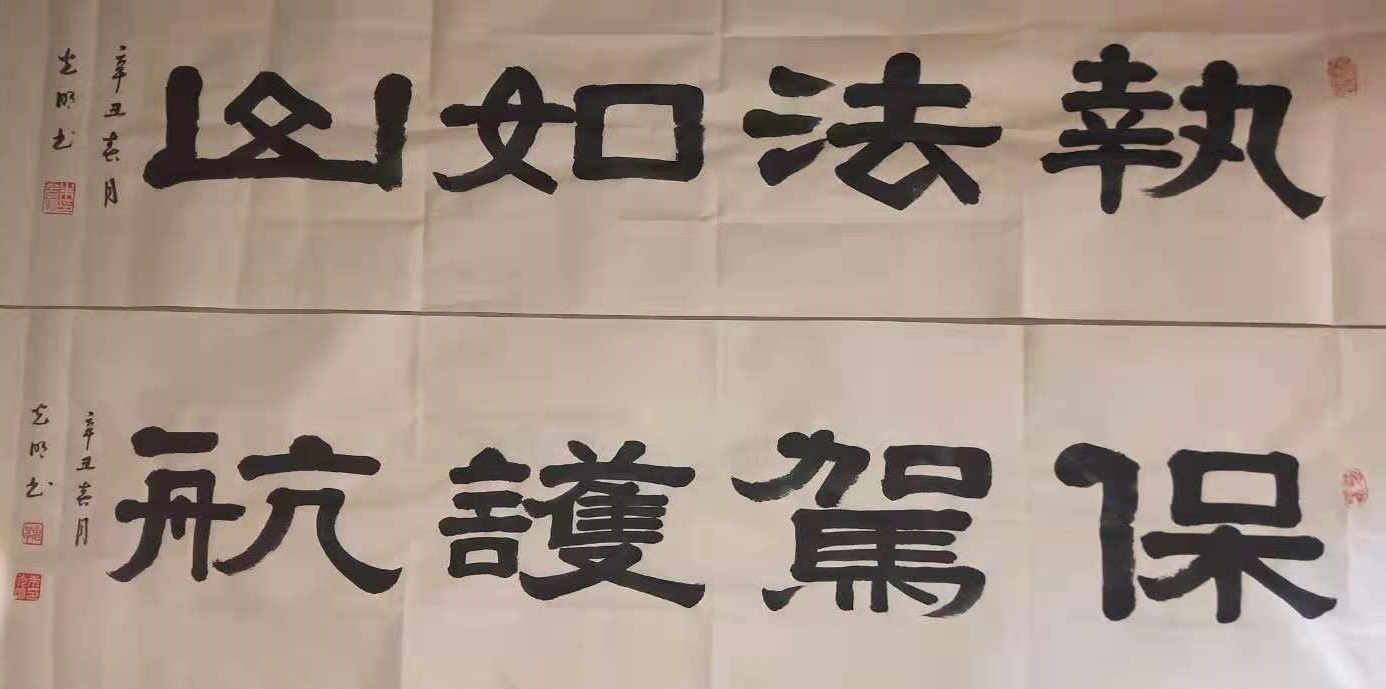 執法如山
辛丑春月
光明书
保駕護航
辛丑春月
光明书